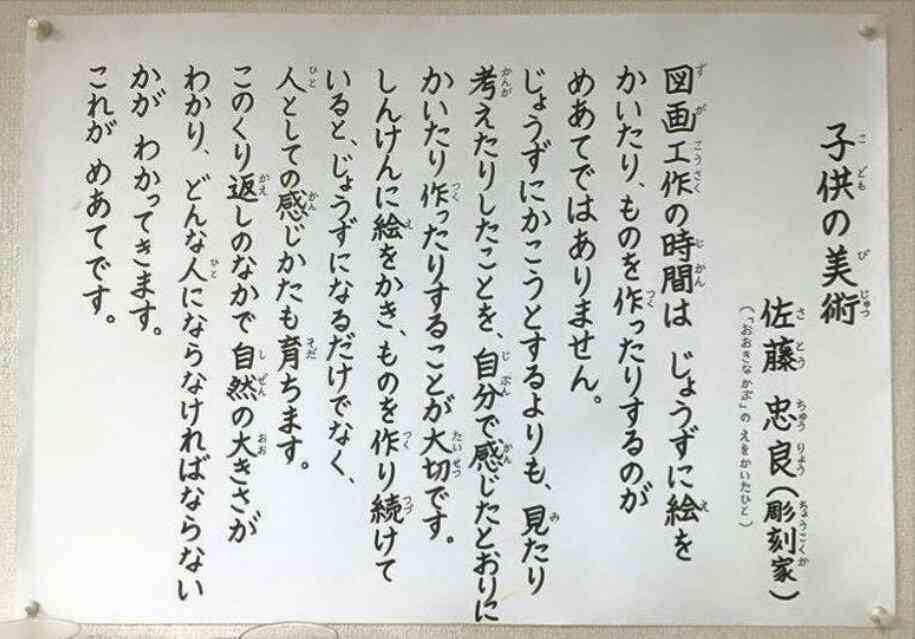 子供の美術
佐藤 忠良(彫刻家)
(「おおきなかぶ」の えをかいたひと)
図画工作の時間は じょうずに絵を
かいたり、ものを作ったりするのが
めあてではありません。
じょうずにかこうとするよりも、見たり
考えたりしたことを、自分で感じたとおりに
かいたり作ったりすることが大切です。
しんけんに絵をかき、ものを作り続けて
いると、じょうずになるだけでなく、
人としての感じかたも育ちます。
このくり返しのなかで 自然の大きさが
わかり、どんな人にならなければならない
かが わかってきます。
これが めあてです。